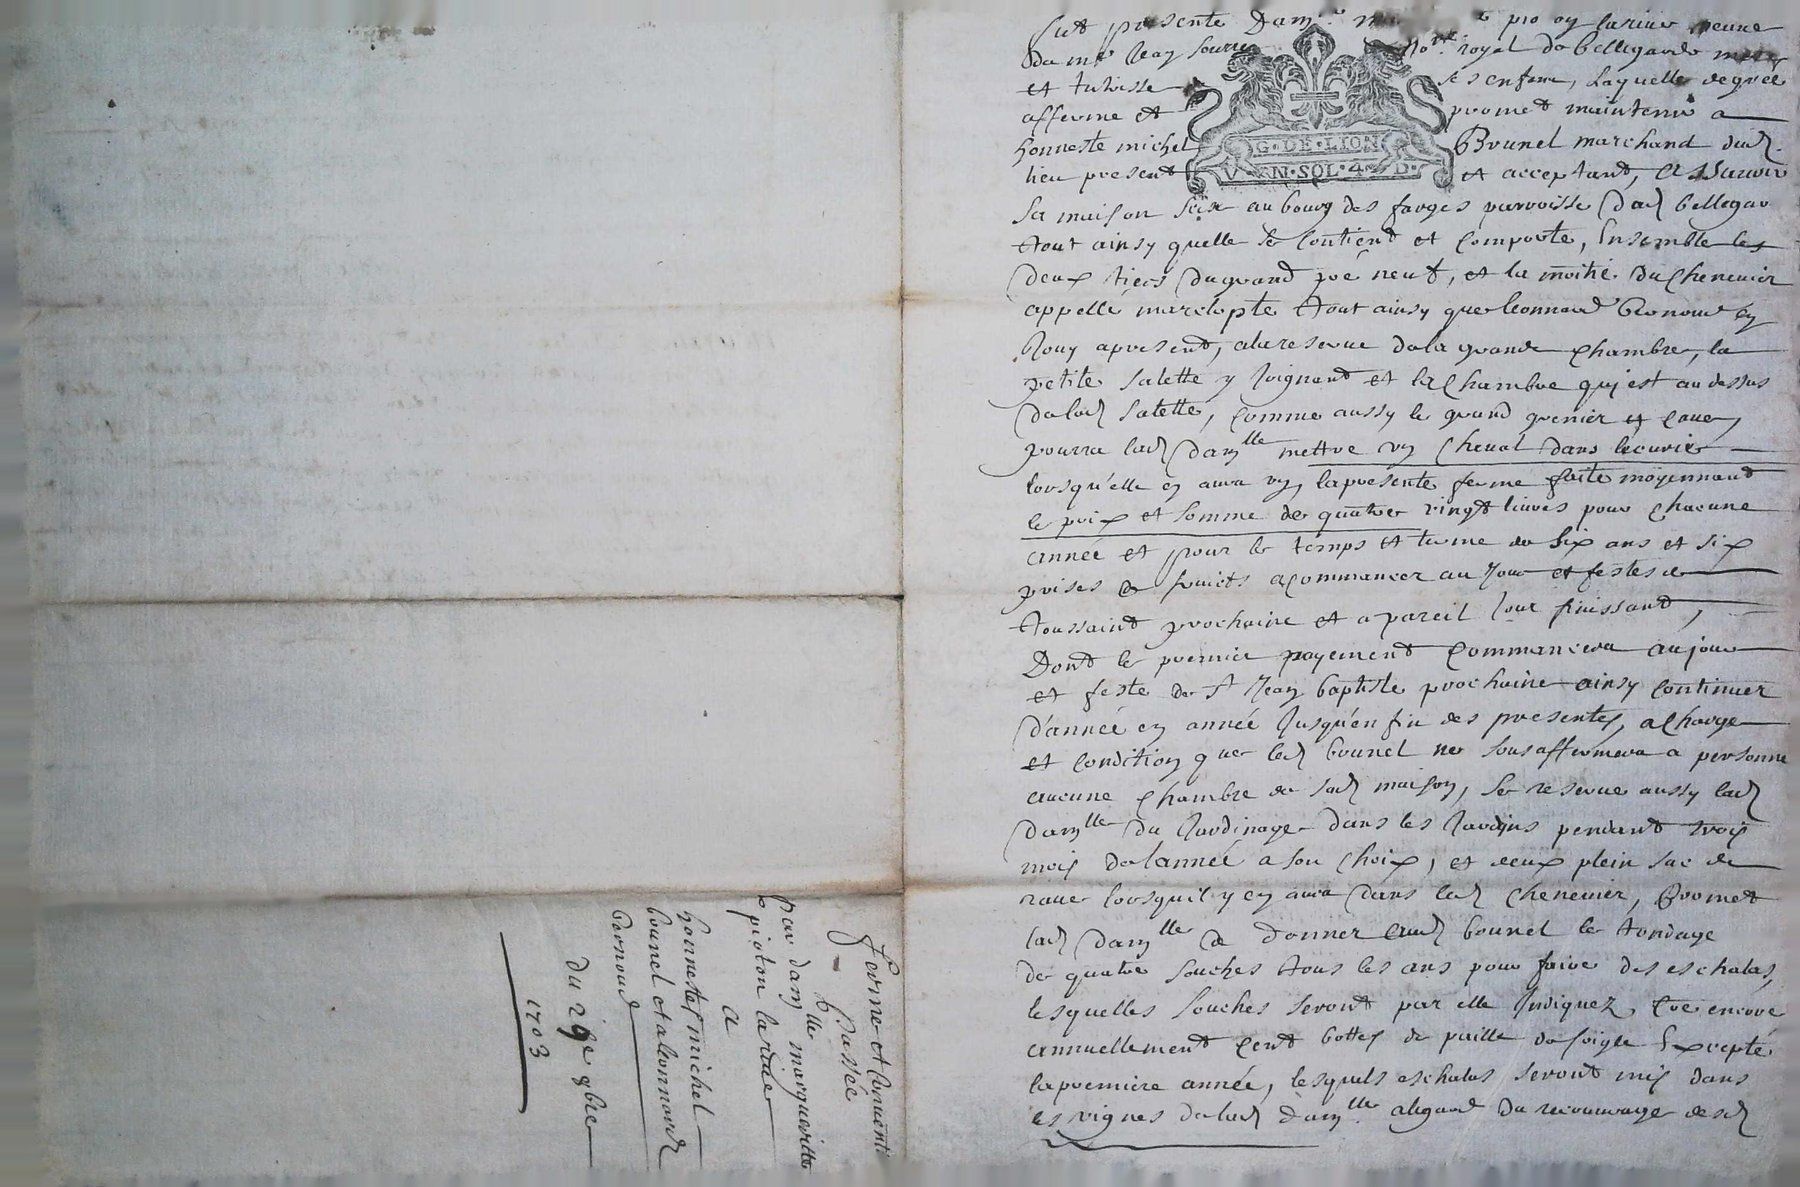 fut presente Dam.lle pioton larive veuve
de me Jean no.re royal de bellegarde mere
et tutrisse ses enfans, Laquelle de gré
afferme et promet maintenir a
honneste michel Brunel marchand dud.
lieu present et acceptant, Assavoir
G·DE·LION
V·N·SOL·4·D·
Sa maison size au bourg des forges parroisse dud bellegar
tout ainsy quelle se Contient et Comporte, Ensemble les
deux tiers du grand pré neuf, et la moitié du Chenevier
appellé tout ainsy que leonnard en
Jouy apresent, alareserve dela grande Chambre, la
petite salette y Joignant et la Chambre quj est au dessus
de lad salette, Comme aussy le grand grenier et Cave,
pourra lad Damlle mettre un Cheval dans lécurie
lorsqu'elle en aura un, lapresente ferme faite moÿennant
le prix et somme de quatre vingt livres pour Chacune
année et pour le temps et terme de six ans et six
prises de fruicts a Commancer au Jour et festes de
toussaint prochaine et a pareil Jour finissant,
Dont le premier payement Commancera au jour
et feste de St Jean baptiste prochaine ainsy Continuer
d'année en année Jusqu'en fin des presentes, a Charge
et Condition que led brunel ne sousaffermera a personne
aucune Chambre de lad maison, se reserve aussy lad
Damlle du Jardinage dans les Jardins pendant trois
mois delannée a son Choix, et deux plein sac de
rave lorsquil y en aura dans lad Chenevier, Promet
lad Damlle de donner aud brunel le tondage
de quatre souches tous les ans pour faire des eschalas,
lesquelles souches seront par elle Indiquez, encore
annuellement Cent bottes de paille de soigle Excepté
lapremiere année, lesquels eschalas seront mis dans
les vignes delad Damlle. alegard du recouvrage desd
ferme et
Passée
par damlle margueritte
pioton larive
A
honnestes michel
brunel et a leonnard
bernoud
du 29e 9bre
1703